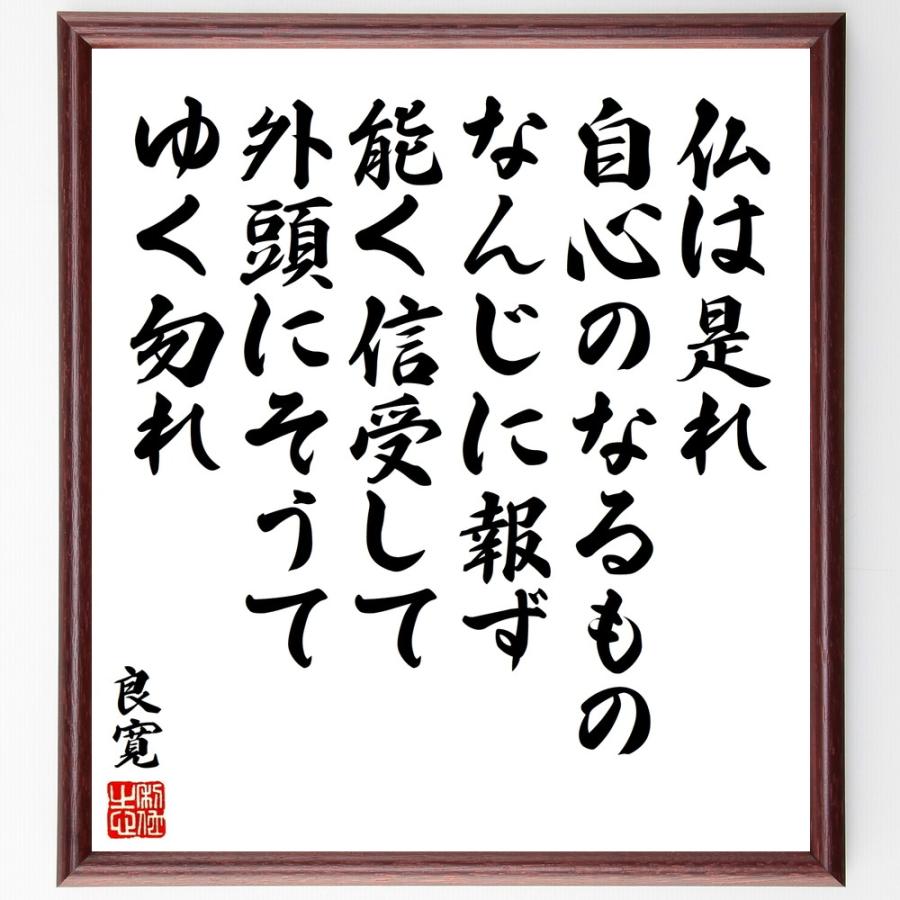 仏は是れ
自心のなるもの
なんじに報ず
能く信受して
外頭にそうて
ゆく勿れ
良寛